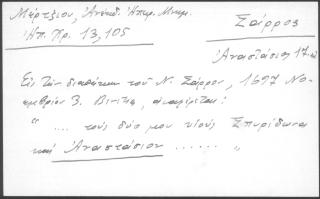 Μέρτζιου, Ἀνέκδ. Ἠπειρ. Μνημ.
Ἠπ. Χρ. 13, 105
Σάρρος
Ἀναστάσιος 17
Εἰς τὴν διαθήκην τοῦ Ν. Σάρρου, 1697 Νο-
εμβρίου 3. Βενετία, ἀναφέρεται:
“ .... τοὺς δύο μου υἱοὺς Σπυρίδωνα
καὶ Ἀναστάσιον ...... ”